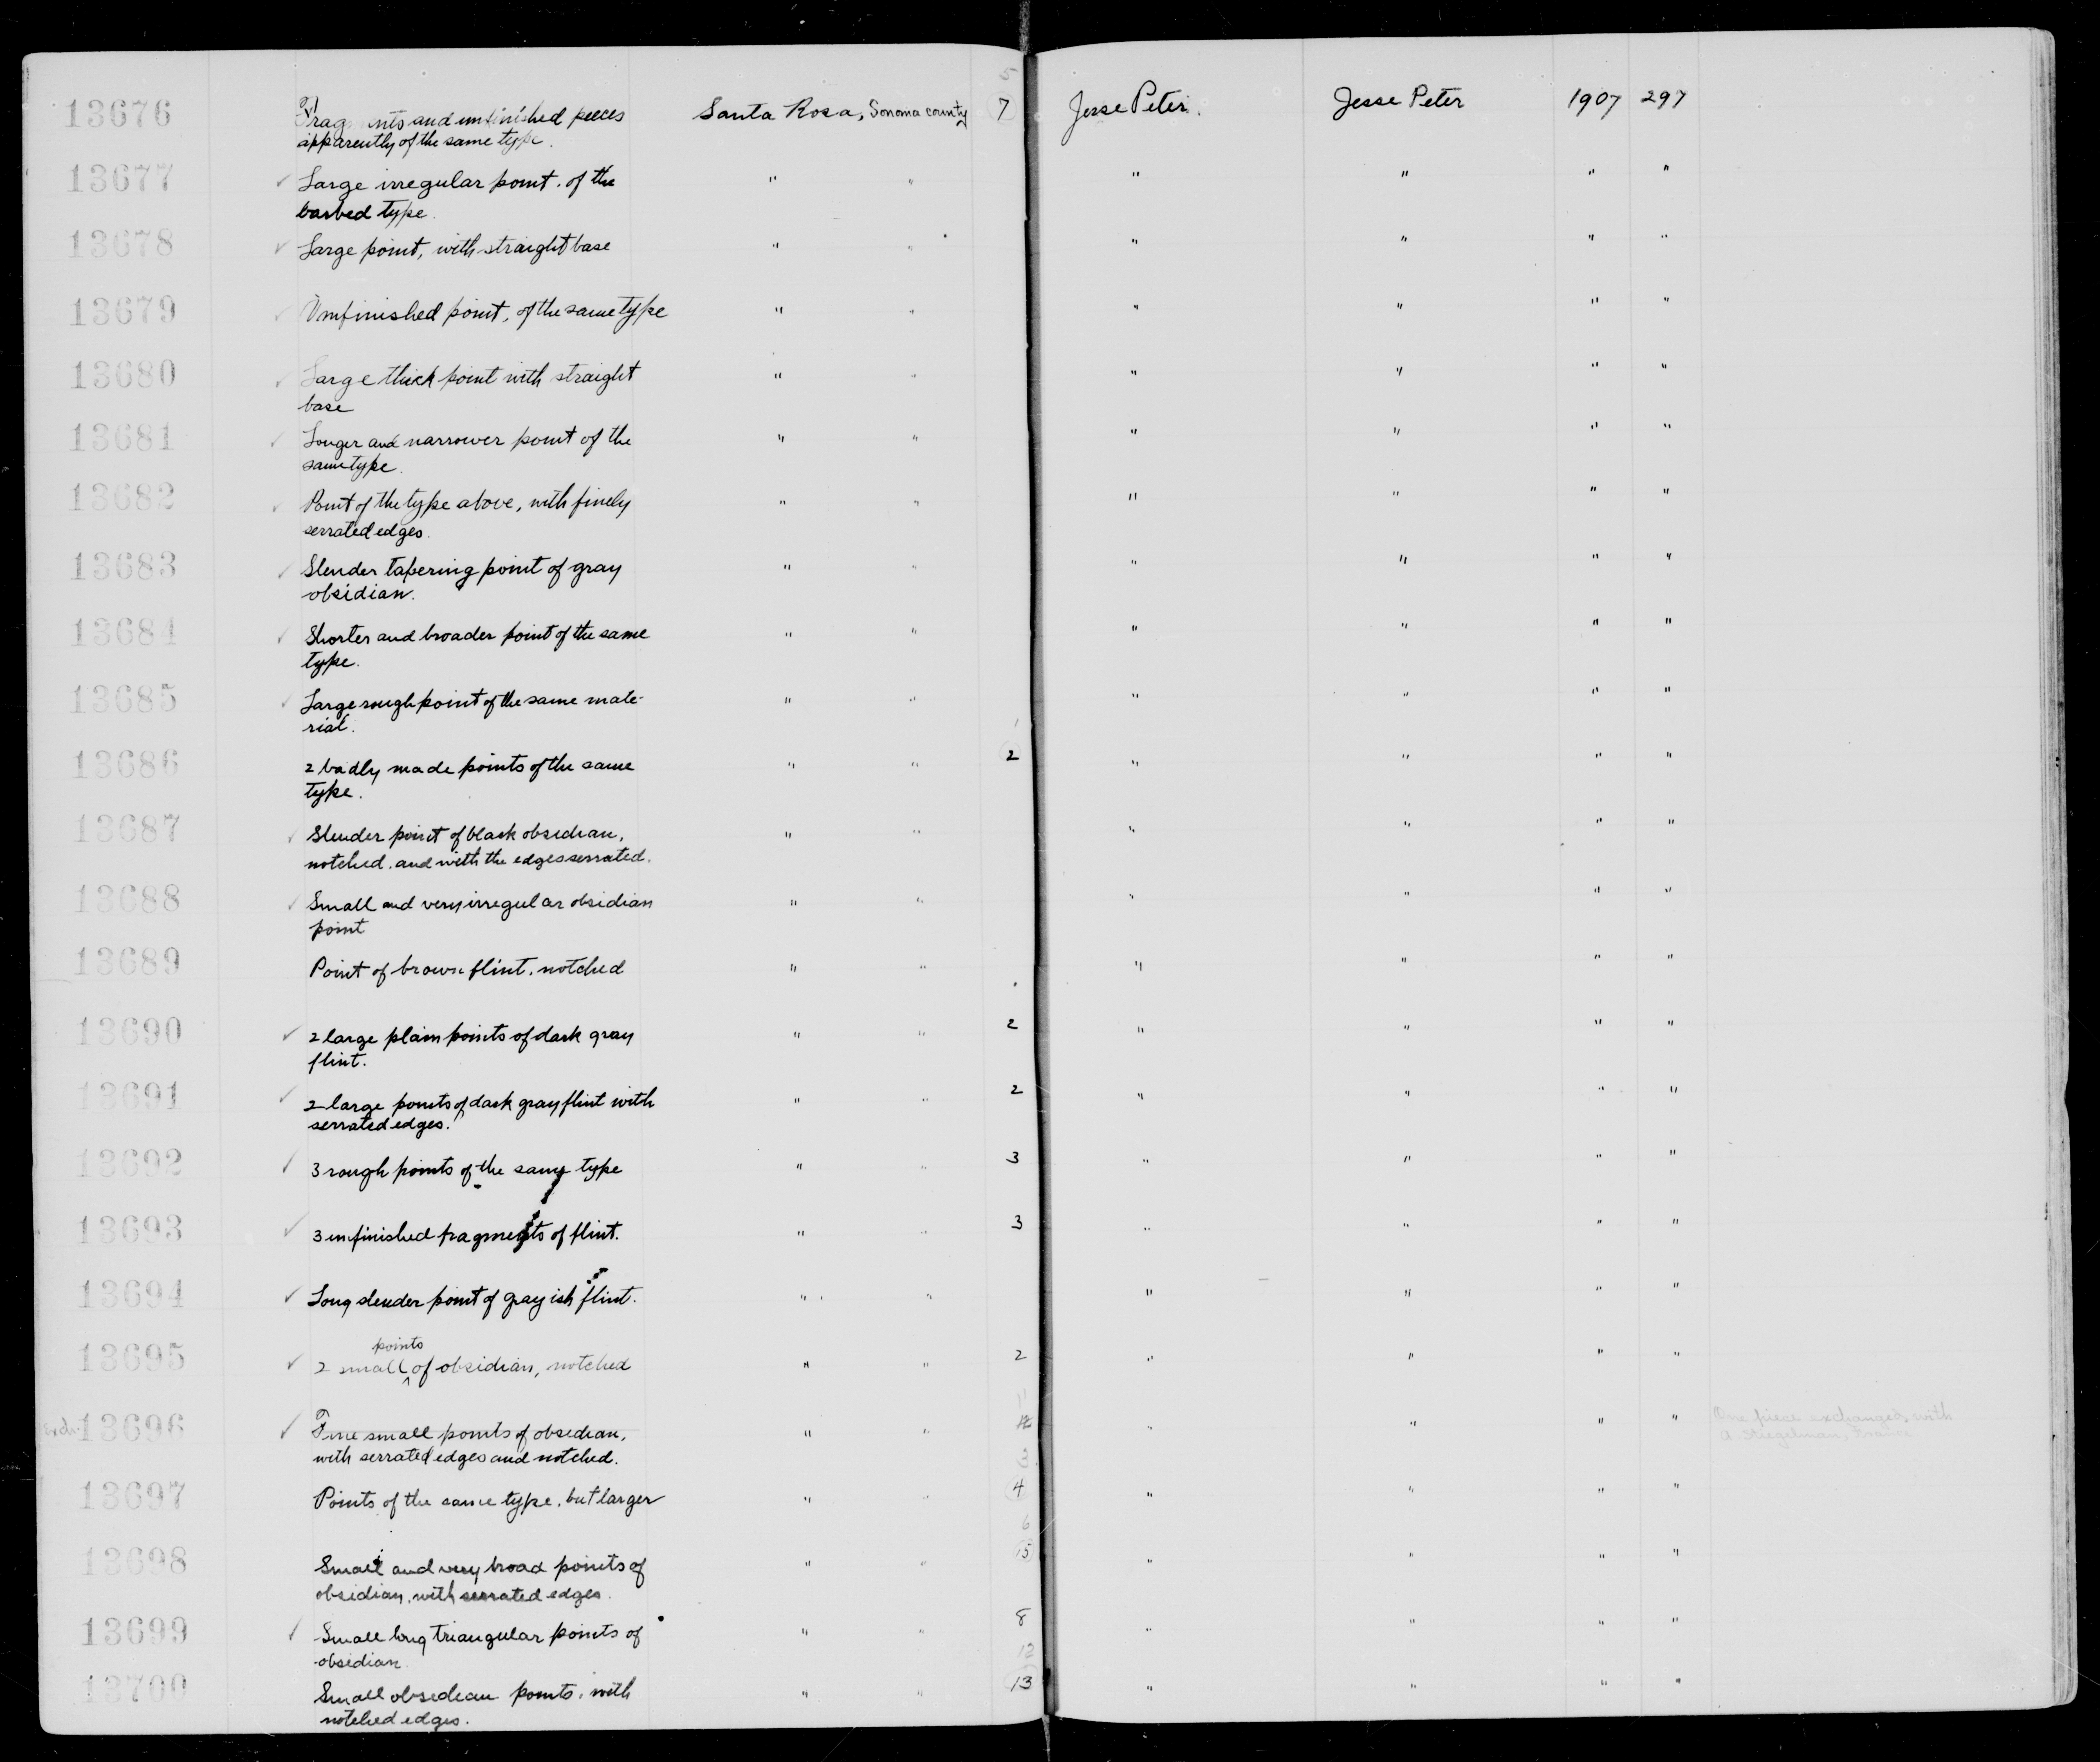 5
13676 Fragments and unfinished pieces Santa Rosa, Sonoma county 7 Jesse Peter. Jesse Peter 1907 297
apparently of the same type.
13677 ✓ Large irregular point. of the " " " " " "
barbed type.
13678 ✓ Large point, with straight base " " " " " "
13679 ✓ Unfinished point, of the same type " " " " " "
13680 ✓ Large thick point with straight " " " " " "
base
13681 ✓ Longer and narrower point of the " " " " " "
same type.
13682 ✓ Point of the type above, with finely " " " " " "
serrated edges.
13683 ✓ Slender tapering point of gray " " " " " "
obsidian.
13684 ✓ Shorter and broader point of the same " " " " " "
type.
13685 ✓ Large rough point of the same mate- " " " " " "
rial.
1
13686 2 badly made points of the same " " 2 " " " "
type.
13687 ✓ Slender point of black obsidian, " " " " " "
notched, and with the edges serrated.
13688 ✓ Small and very irregular obsidian " " " " " "
point
13689 Point of brown flint, notched " " " " " "
13690 ✓ 2 large plain points of dark gray " " 2 " " " "
flint.
13691 ✓ 2 large points of dark gray flint with " " 2 " " " "
serrated edges.
13692 ✓ 3 rough points of the same type " " 3 " " " "
13693 ✓ 3 unfinished fragments of flint. " " 3 " " " "
13694 ✓ Long slender point of grayish flint. " " " " " "
points
13695 ✓ 2 small ^ of obsidian, notched " " 2 " " " "
11
Exch. 13696 ✓ Fine small points of obsidian, " " 12 " " " " One piece exchanged with
with serrated edges and notched. A. Stiegelman, France
3
13697 Points of the same type, but larger " " 4 " " " "
6
13698 Small and very broad points of " " 15 " " " "
obsidian, with serrated edges.
13699 ✓ Small long triangular points of " " 8 " " " "
obsidian.
12
13700 Small obsidian points, with " " 13 " " " "
notched edges.